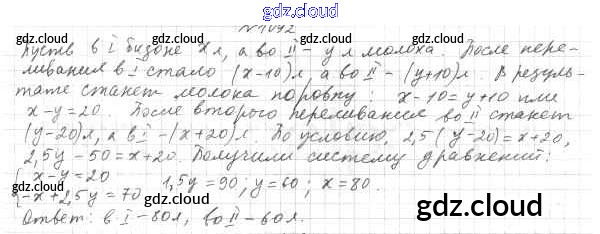 gdz.cloud
№1092
gdz.cloud
Пусть в I бидоне x л, а во II – y л молока. После пере-
ливания в I стало (x-10) л, а во II – (y+10) л. В резуль-
тате станет молока поровну: x-10=y+10 или
x-y=20. После второго переливания во II станет
(y-20) л, а в I – (x+20) л. По условию, 2,5(y-20)=x+20,
2,5y-50=x+20. Получили систему уравнений:
{ x-y=20
-x+2,5y=70 1,5y=90; y=60; x=80.
gdz.cloud
Ответ: в I – 80 л, во II – 60 л.
gdz.cloud